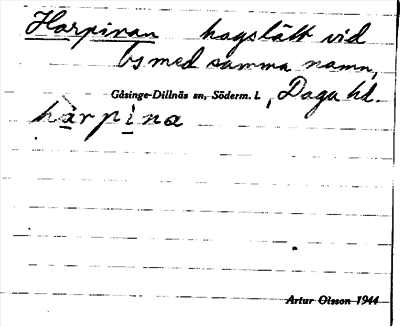 Harpinan hagslätt vid
ts med samma namn,
Gåsinge-Dillnäs sn, Söderm. l., Daga hd.
hàrpina
Artur Olsson 1944